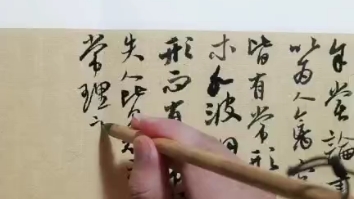 余嘗論畫
以為人禽宮
皆有常形
木水波烟
形而有常
失人皆知
常理